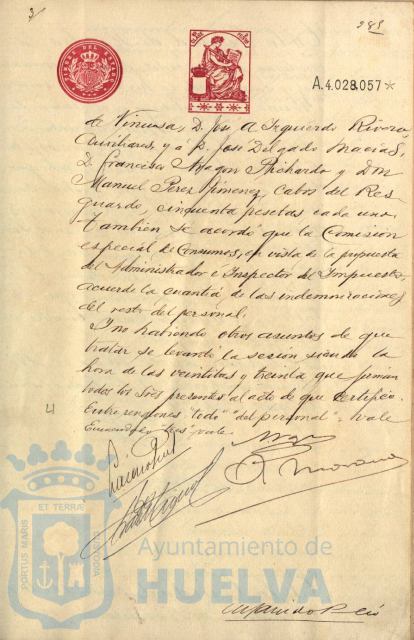 3
285
TIMBRE DEL ESTADO
A.4.028.057*
de Vinuesa, D. José A Izquierdo Rivero,
Auxiliares, y á D. José Delgado Macias,
D. Francisco Aragon Pichardo y Don
Manuel Perez Jimenez, cabos del Res
guardo, cinquenta pesetas cada uno.
Tambien se acordó que la Comision
especial de Consumos, en vista de la propuesta
del Administrador e Inspector del Impuesto,
acuerde la cuantia de las indemnizaciones
del resto del personal.
Y no habiendo otros asuntos de que
tratar se levantó la sesion siendo la
hora de las veintidos y treinta que firman
todos los Sres presentes al acto de que certifico.
Entre renglones "todo" "del personal" vale
vale
ET TERRÆ
PORTUS MARIS
CUSTODIA
Ayuntamiento de
HUELVA